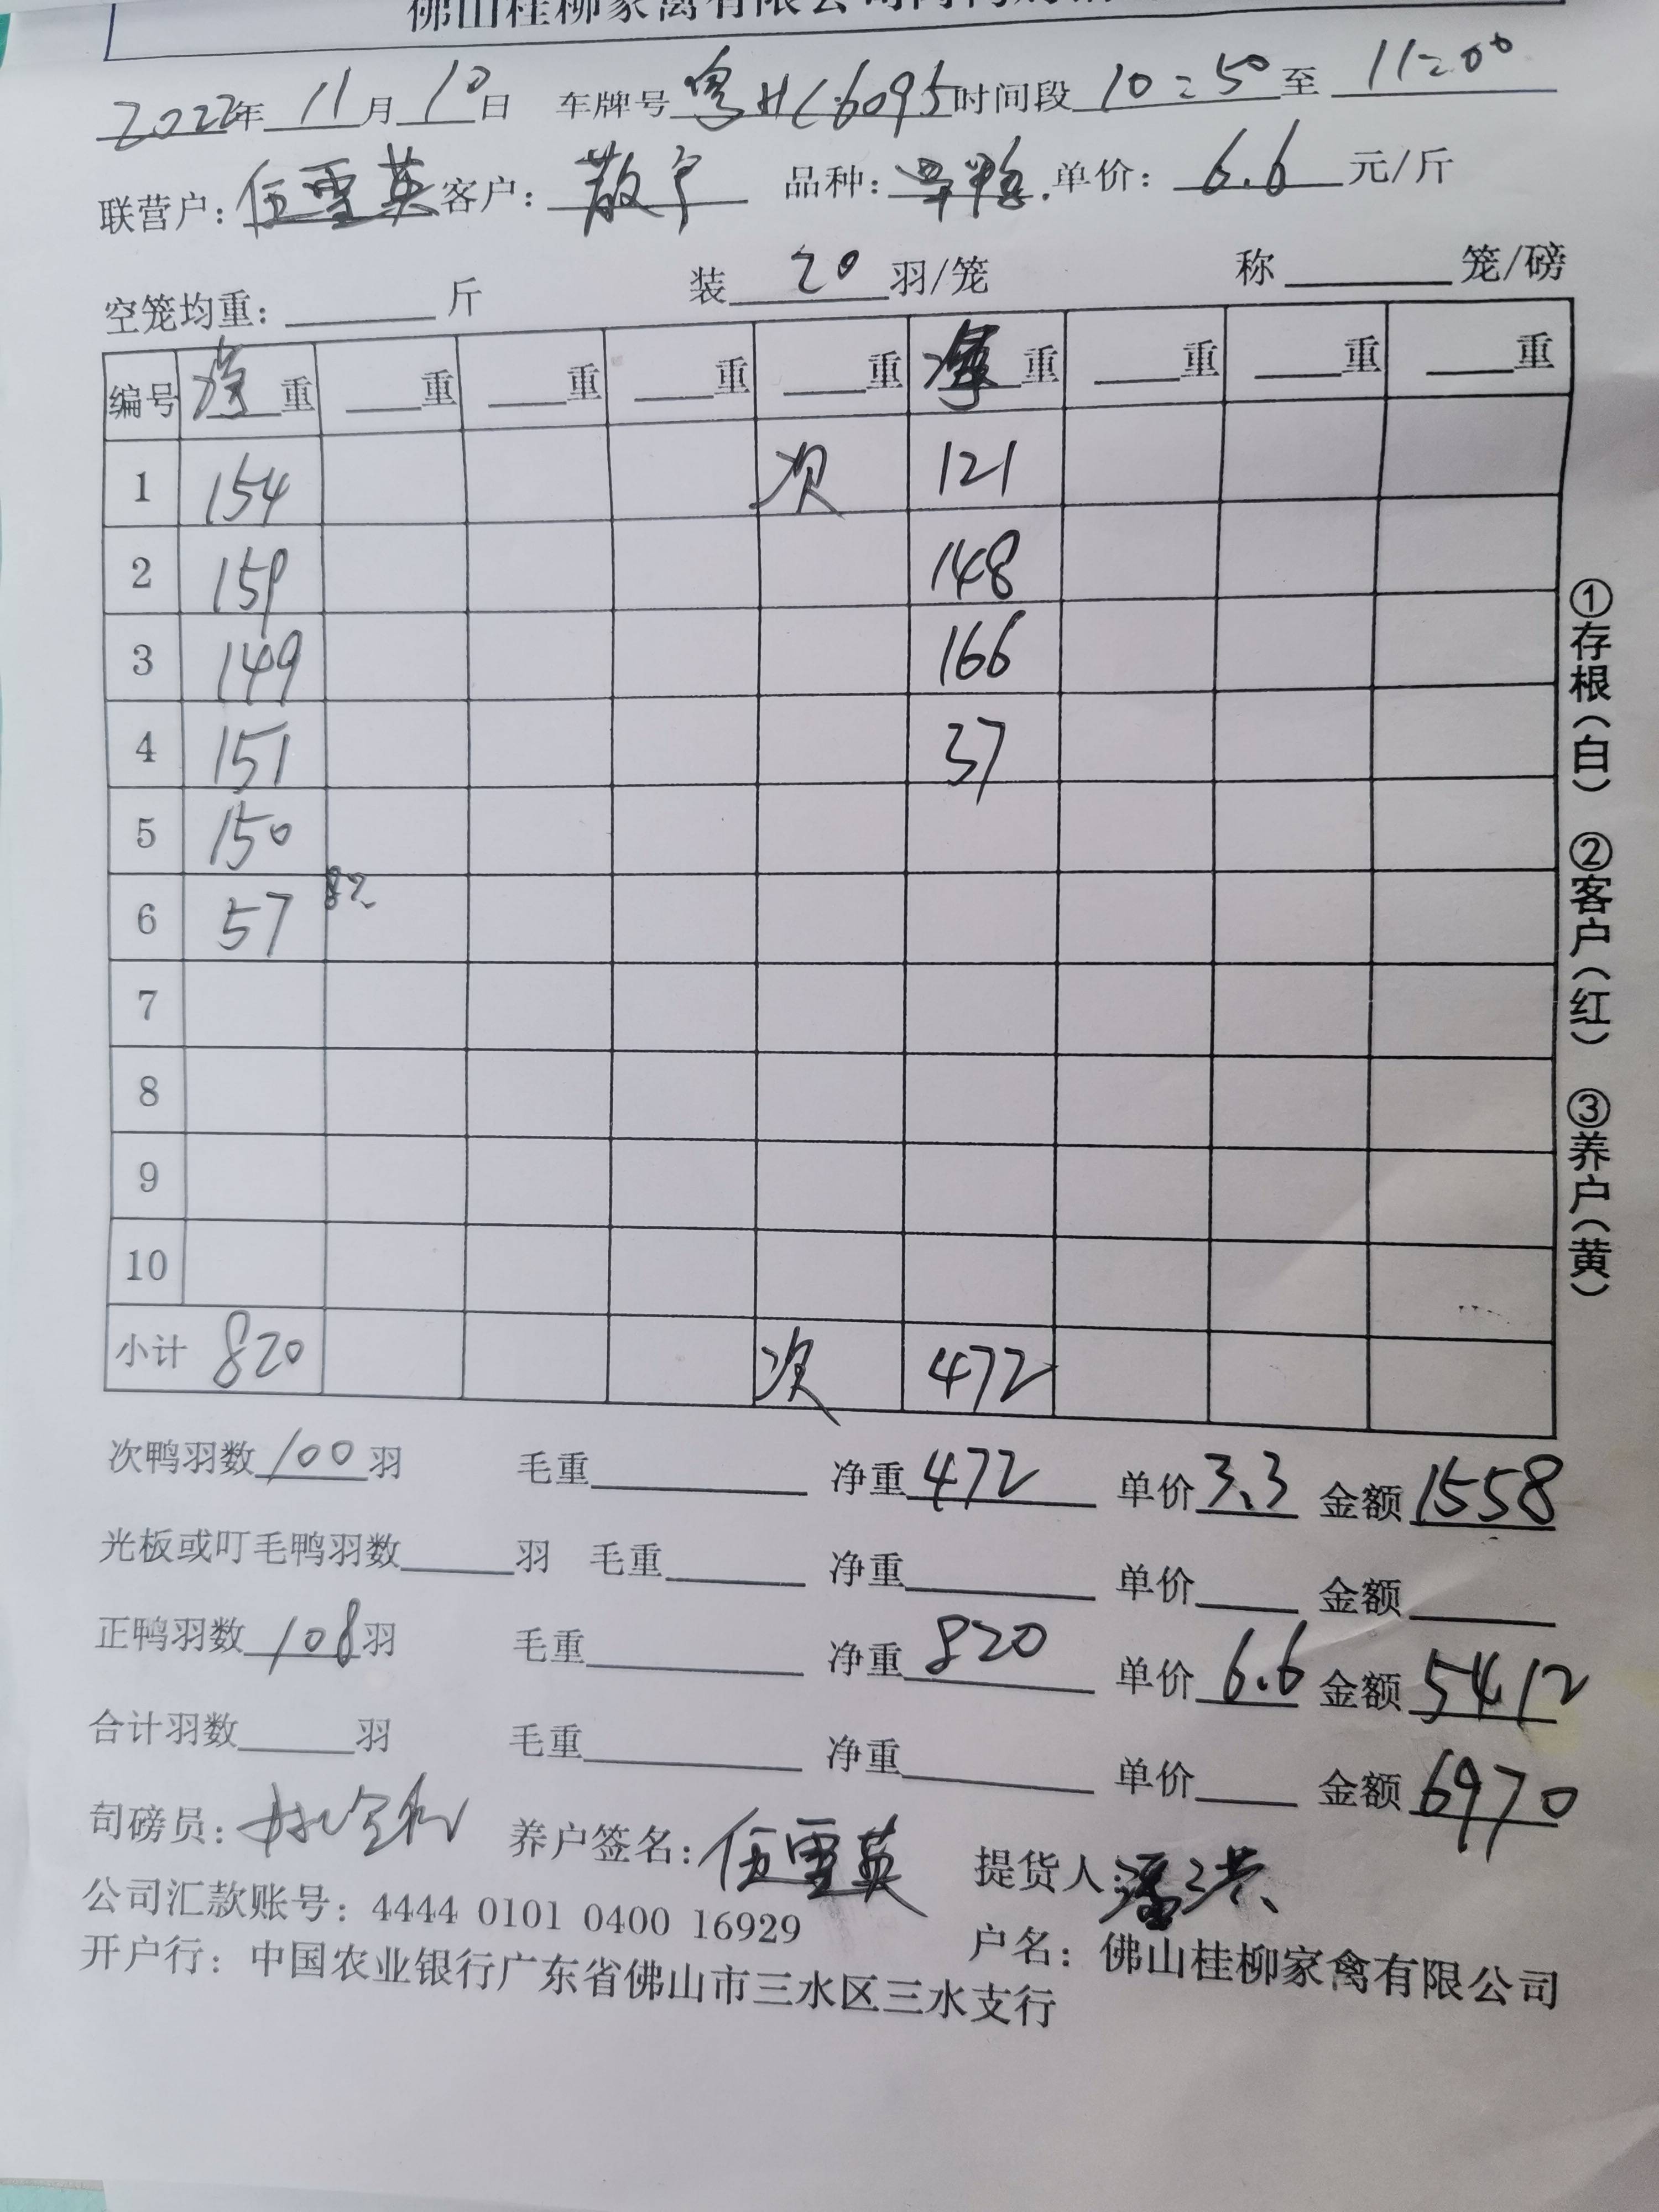 佛山桂柳家禽有限公司
2022年 11月 10日 车牌号 粤HC6095 时间段 10:50 至 11:00
联营户: 伍雪英 客户: 散户 品种: 单价: 6.6 元/斤
空笼均重: 斤 装 20 羽/笼 称 笼/磅
编号 净重 重 重 重 重 净重 重 重 重
1 154 次 121
2 159 148
3 149 166
4 151 37
5 150
6 57 8只
7
8
9
10
小计 820 次 472
次鸭羽数 100 羽 毛重 净重 472 单价 3.3 金额 1558
光板或叮毛鸭羽数 羽 毛重 净重 单价 金额
正鸭羽数 108 羽 毛重 净重 820 单价 6.6 金额 5412
合计羽数 羽 毛重 净重 单价 金额 6970
司磅员: 养户签名: 伍雪英 提货人:
公司汇款账号: 4444 0101 0400 16929 户名: 佛山桂柳家禽有限公司
开户行: 中国农业银行广东省佛山市三水区三水支行
①存根(白) ②客户(红) ③养户(黄)